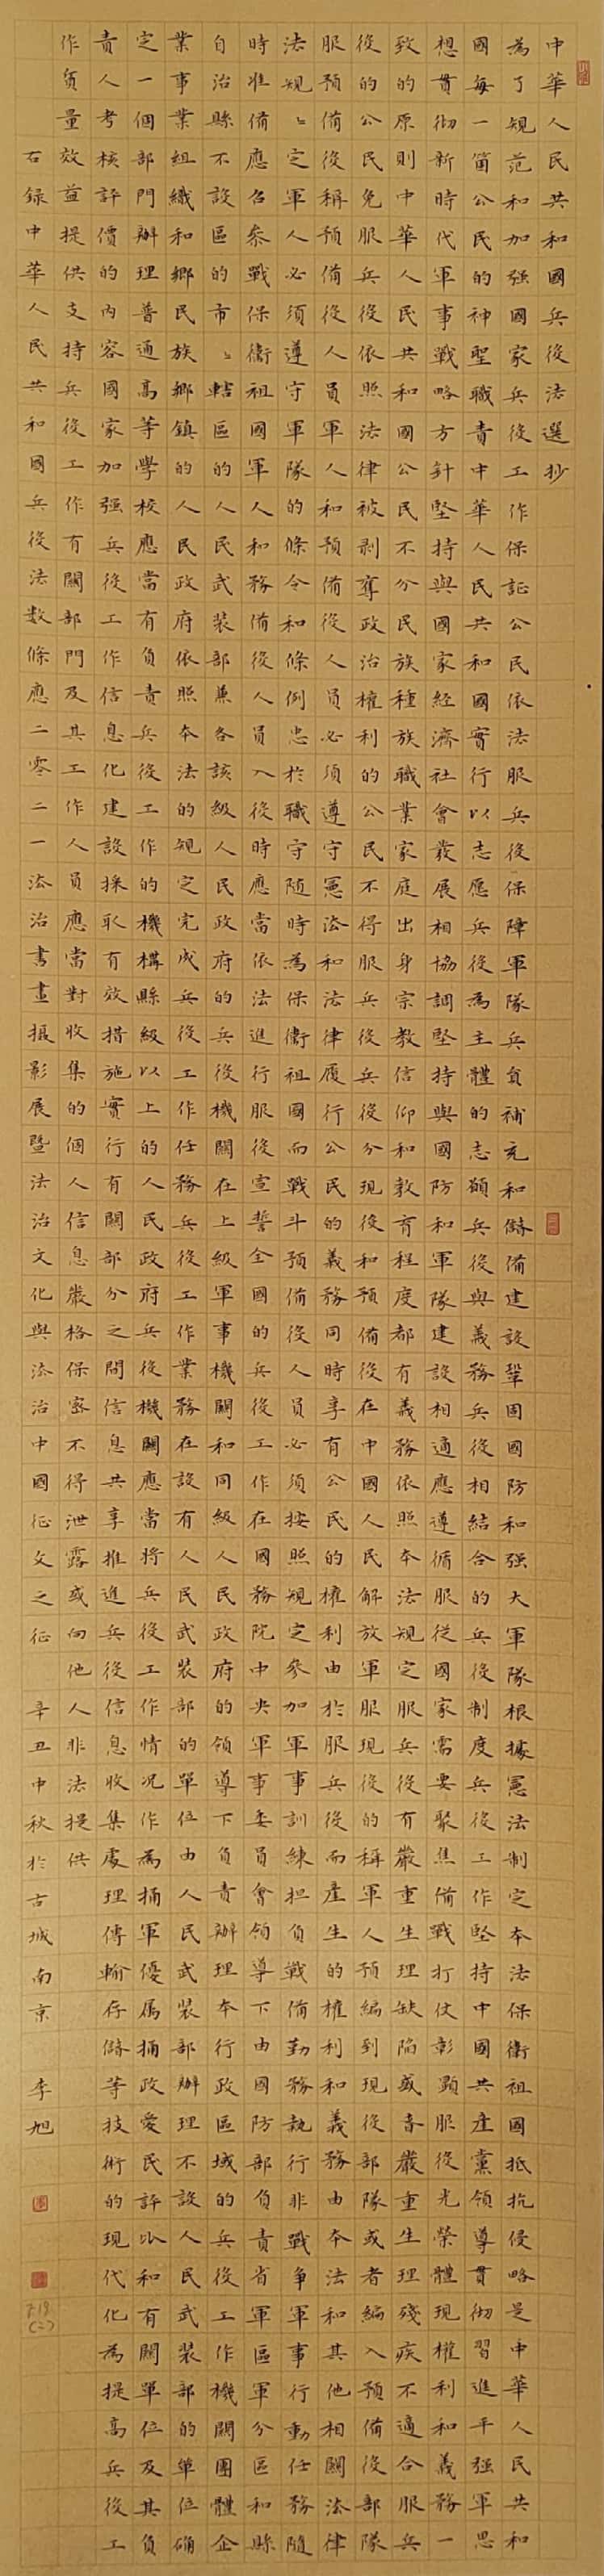 中華人民共和國兵役法選抄
為了規范和加强國家兵役工作保証公民依法服兵役保障軍隊兵員補充和儲備建設鞏固國防和强大軍隊根據憲法制定本法保衛祖國抵抗侵略是中華人民共和
國每一箇公民的神聖職責中華人民共和國實行以志愿兵役為主體的志願兵役與義務兵役相結合的兵役制度兵役工作堅持中國共產黨領導貫彻習進平强軍思
想貫彻新時代軍事戰略方針堅持與國家經濟社會發展相協調堅持與國防和軍隊建設相適應遵循服從國家需要聚焦備戰打仗彰顯服役光榮體現權利和義務一
致的原則中華人民共和國公民不分民族種族職業家庭出身宗教信仰和教育程度都有義務依照本法規定服兵役有嚴重生理缺陷或者嚴重生理殘疾不適合服兵
役的公民免服兵役依照法律被剥奪政治權利的公民不得服兵役兵役分現役和預備役在中國人民解放軍服現役的稱軍人預編到現役部隊或者編入預備役部隊
服預備役稱預備役人員軍人和預備役人員必須遵守憲法和法律履行公民的義務同時享有公民的權利由於服兵役而產生的權利和義務由本法和其他相關法律
法規〻定軍人必須遵守軍隊的條令和條例忠於職守随時為保衛祖國而戰斗預備役人員必須按照規定參加軍事訓練担負戰備勤務執行非戰争軍事行動任務隨
時准備應召參戰保衛祖國軍人和務備役人員入役時應當依法進行服役宣誓全國的兵役工作在國務院中央軍事委員會領導下由國防部負責省軍區軍分區和縣
自治縣不設區的市〻轄區的人民武装部兼各該級人民政府的兵役機關在上級軍事機關和同級人民政府的領導下負責辦理本行政區域的兵役工作機關團體企
業事業組織和鄉民族鄉鎮的人民政府依照本法的規定完成兵役工作任務兵役工作業務在設有人民武装部的單位由人民武装部辦理不設人民武装部的單位确
定一個部門辦理普通高等學校應當有負責兵役工作的機構縣級以上的人民政府兵役機關應當將兵役工作情况作為擁軍優属擁政愛民評比和有關單位及其負
責人考核評價的內容國家加强兵役工作信息化建設採取有效措施實行有關部分之間信息共享推進兵役信息收集處理傳輸存儲等技術的現代化為提高兵役工
作質量效益提供支持兵役工作有關部門及其工作人員應當對收集的個人信息嚴格保密不得泄露或向他人非法提供
右録中華人民共和國兵役法数條應二零二一法治書畫攝影展暨法治文化與法治中國征文之征 辛丑中秋於古城南京 李旭
7.19
(二)